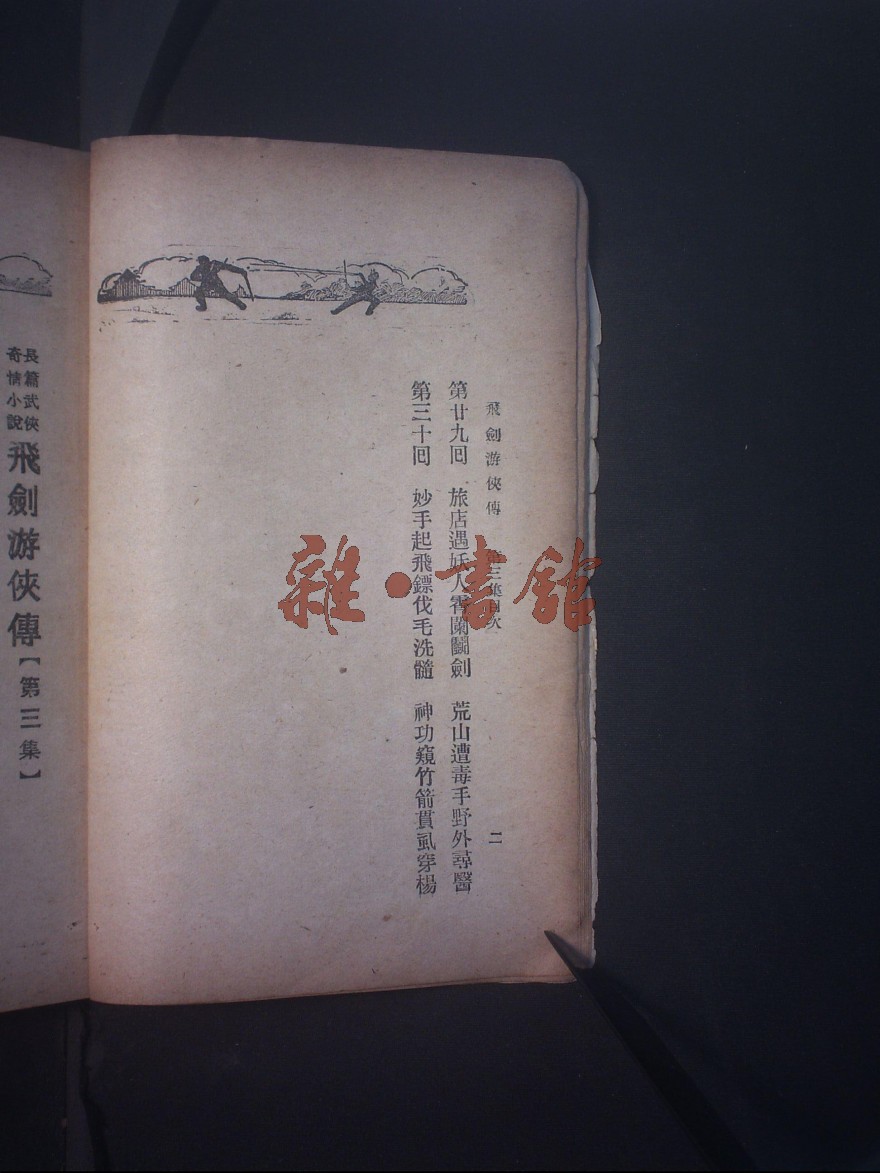 飛劍游俠傳 第三集目次 二
第廿九回 旅店遇妖人香閨鬬劍 荒山遭毒手野外尋醫
第三十回 妙手起飛鏢伐毛洗髓 神功窺竹箭貫虱穿楊
長篇武俠
奇情小說
飛劍游俠傳【第三集】
雜·書館